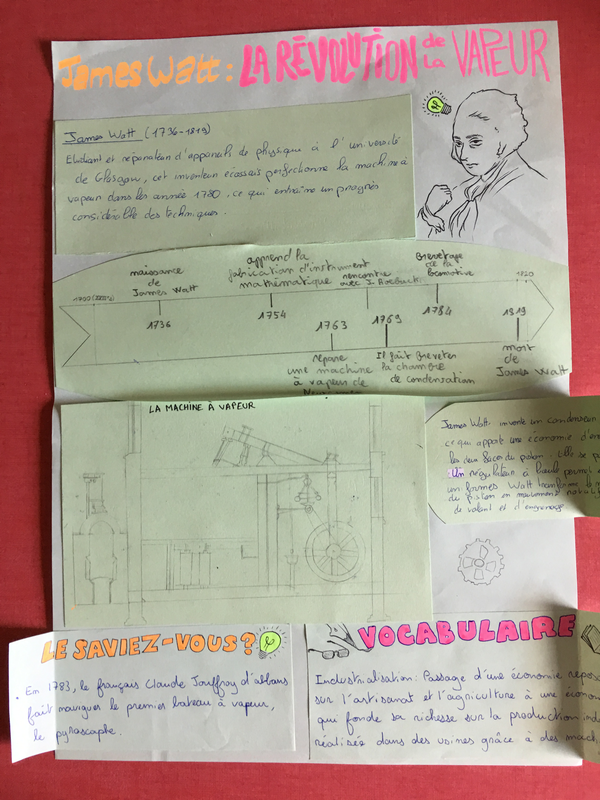 James Watt : LA RÉVOLUTION de la VAPEUR
James Watt (1736-1819)
Etudiant et réparateur d'appareils de physique à l'université
de Glasgow, cet inventeur écossais perfectionne la machine à
vapeur dans les année 1780, ce qui entraîne un progrès
considérable des techniques.
naissance
de
James Watt
1736
apprend la
fabrication d'instrument
mathématique
1754
1763
répare
une machine
à vapeur de
rencontre
avec J. Roebuck
1769
Il fait breveter
la chambre
de condensation
Brevetage
de la
locomotive
1784
1820
1819
mort
de
James Watt
LA MACHINE À VAPEUR
James Watt invente un condenseur
ce qui apporte une économie
les deux faces du piston.
Un régulateur à boule permet
Watt transforme
du piston en mouvement
de volant et d'engrenage
LE SAVIEZ-VOUS?
• En 1783, le français Claude Jouffroy d'abbans
fait naviguer le premier bateau à vapeur,
le pyroscaphe.
VOCABULAIRE
Industrialisation : Passage d'une économie
sur l'artisanat et l'agriculture à une
qui fonde sa richesse sur la production
réalisée dans des usines grâce à des